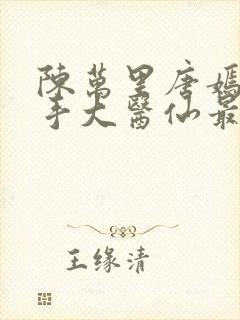 陳萬里唐嫣
手大醫仙最
王缘清